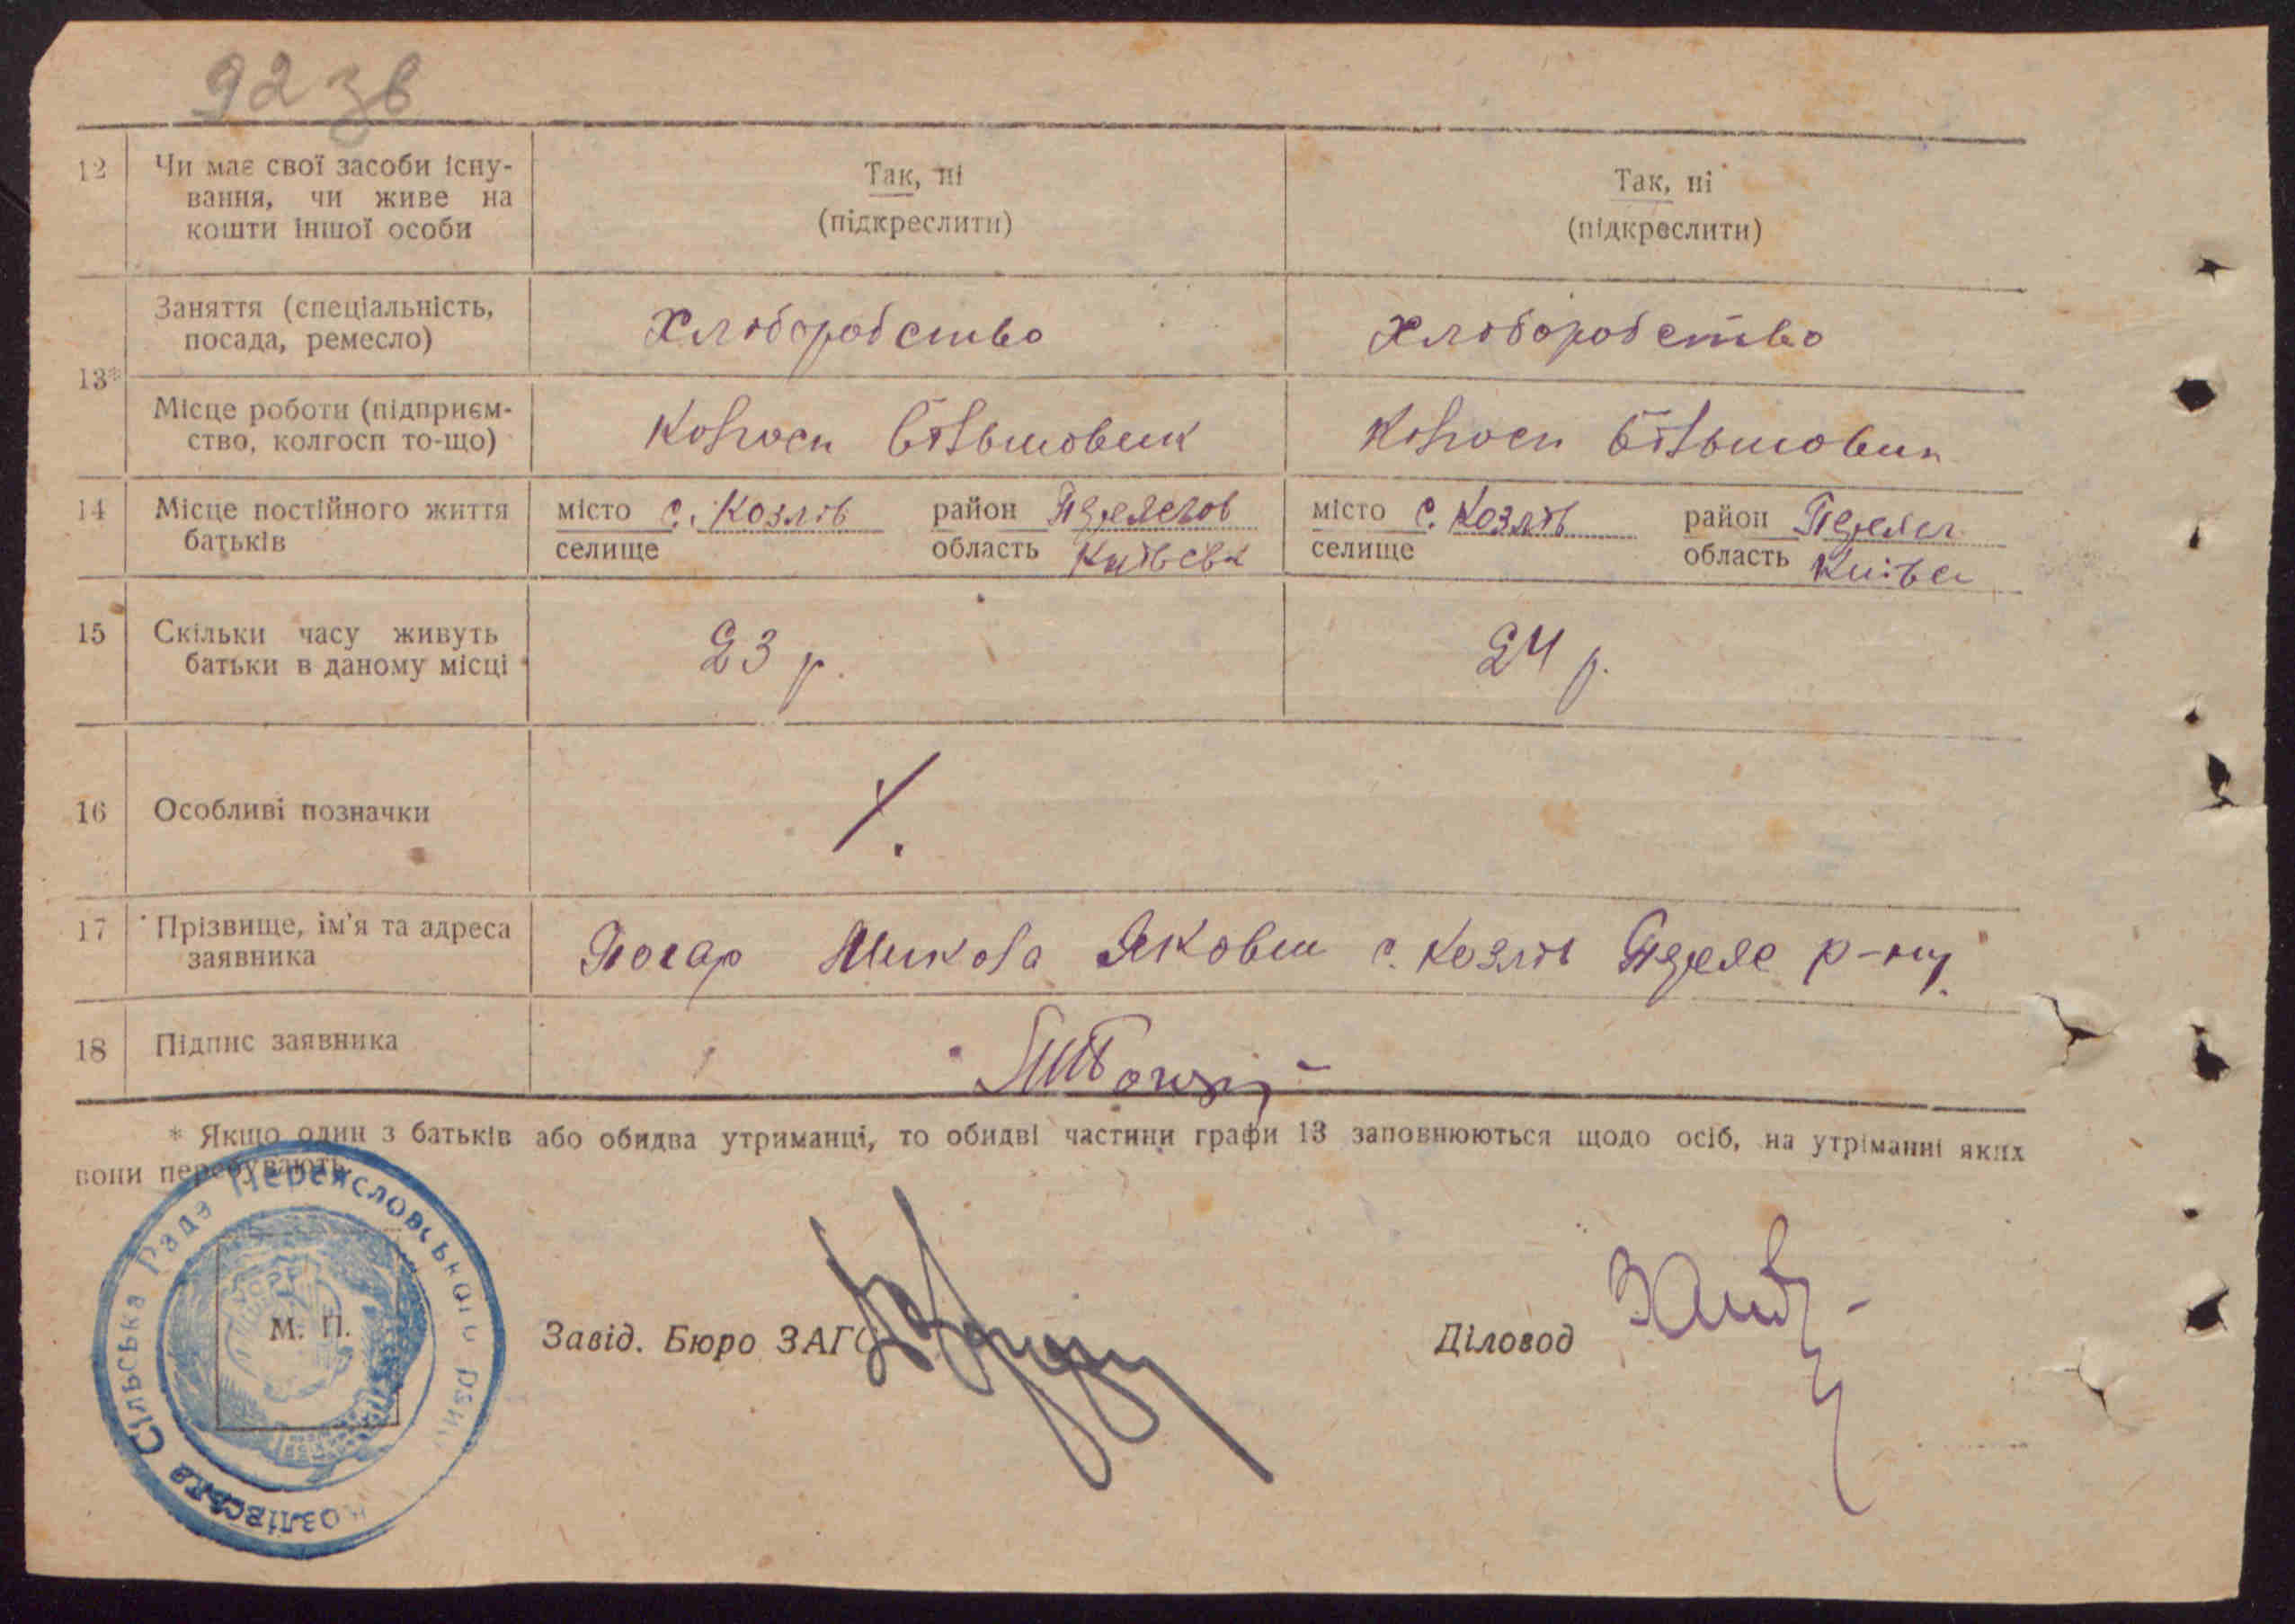 92 зв
12 Чи має свої засоби існу- Так, ні Так, ні
вання, чи живе на (підкреслити) (підкреслити)
кошти іншої особи
Заняття (спеціальність, Хліборобство Хліборобство
посада, ремесло)
13*
Місце роботи (підприєм- Колгосп Більшовик Колгосп Більшовик
ство, колгосп то-що)
14 Місце постійного життя місто с. Козлів район Переяслов місто с. Козлів район Переясл
батьків селище область Київська селище область Київсь
15 Скільки часу живуть 23 р. 24 р.
батьки в даному місці
16 Особливі позначки
17 Прізвище, ім'я та адреса Микола Якович с. Козлів Переяс р-ну
заявника
18 Підпис заявника
* Якщо один з батьків або обидва утриманці, то обидві частини графи 13 заповнюються щодо осіб, на утріманні яких
вони перебувають
Козлівська Сільська Рада Переясловського райо
М. П.
Завід. Бюро ЗАГС
Діловод